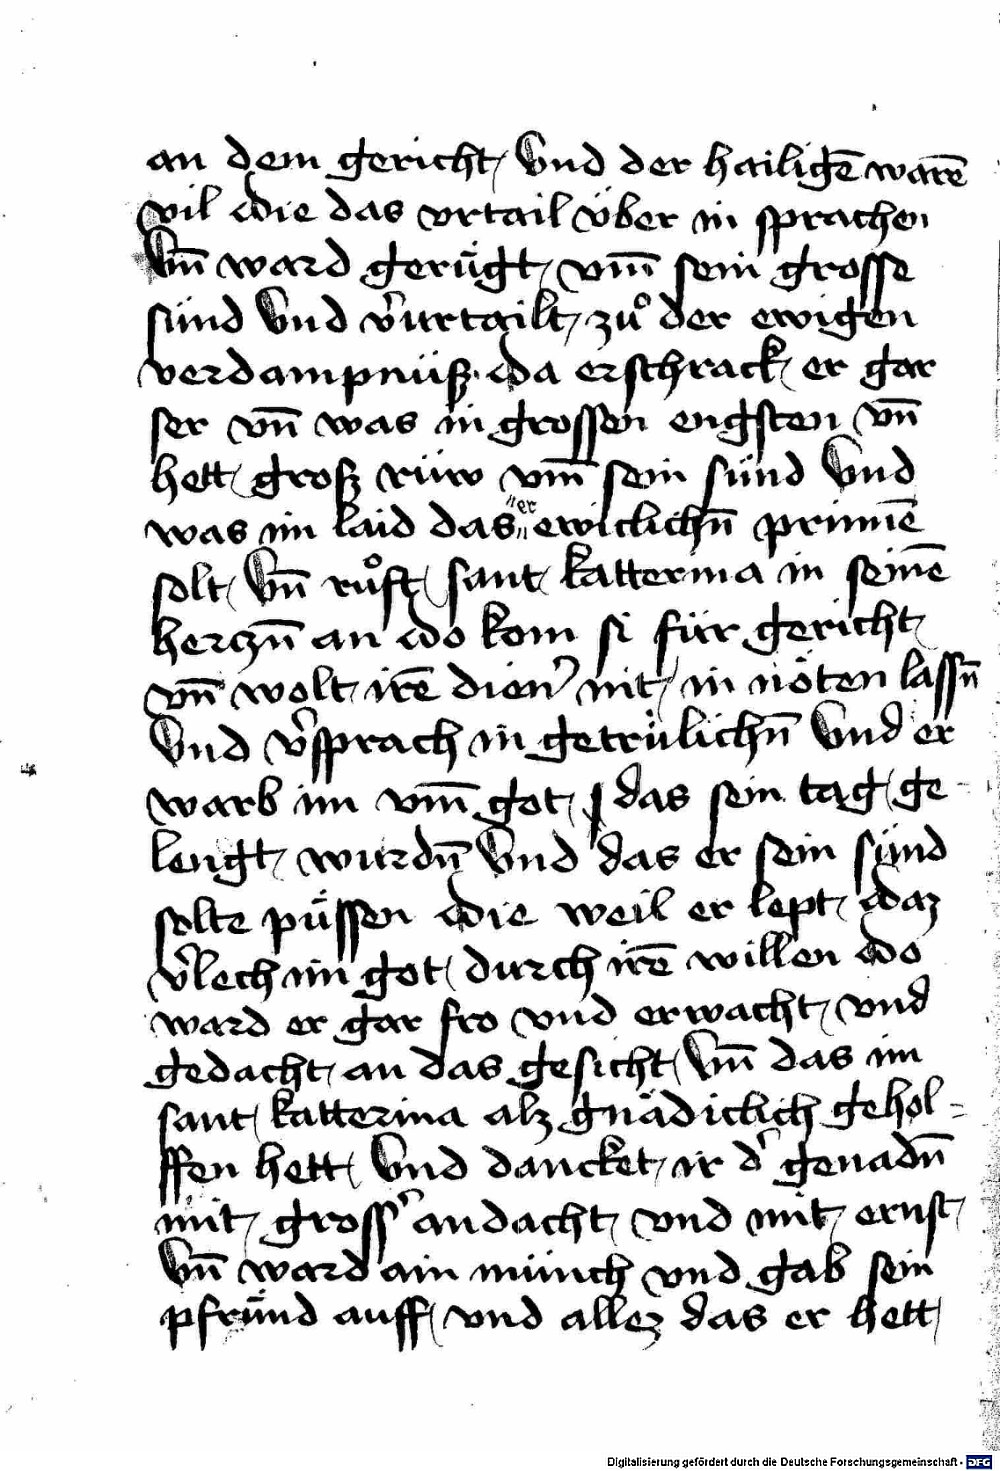 an dem gericht / Vnd der hailigē warē
vil die das vrtail über in sprachen
Vn̄ ward gerůgt / vm̄ sein grosse
sünd Vnd v̓urtailt / zů der ewigen
verdampnüß · da erschrack / er gar
ser vn̄ was in grossen engsten vn̄
hett / groß rüw vm̄ sein sünd Vnd
was im laid das er ewiclichn̄ prinnē
solt / Vn̄ růft / sant / katterina in seinē
herczn̄ an do kom si für gericht /
vn̄ wolt / irē dien̓ nit / in nöten lassn̄
Vnd v̓sprach in getrülichn̄ Vnd er
warb im vm̄ got / das sein tag / ge-
lengt / wurdn̄ Vnd das er sein sünd
solte püssen die weil er lept / daz
v̓lech im got / durch irē willen do
ward er gar fro vnd erwacht / vnd
gedacht / an das gesicht / Vn̄ das im
sant / katterina alz gnädiclich gehol=
ffen hett / Vnd dancket / ir d̓ genadn̄
mit / gross̓ andacht / vnd mit / ernst /
Vn̄ ward ain münch vnd gab sein
pfründ auff / vnd allez das er hett /
Digitalisierung gefördert durch die Deutsche Forschungsgemeinschaft - DFG